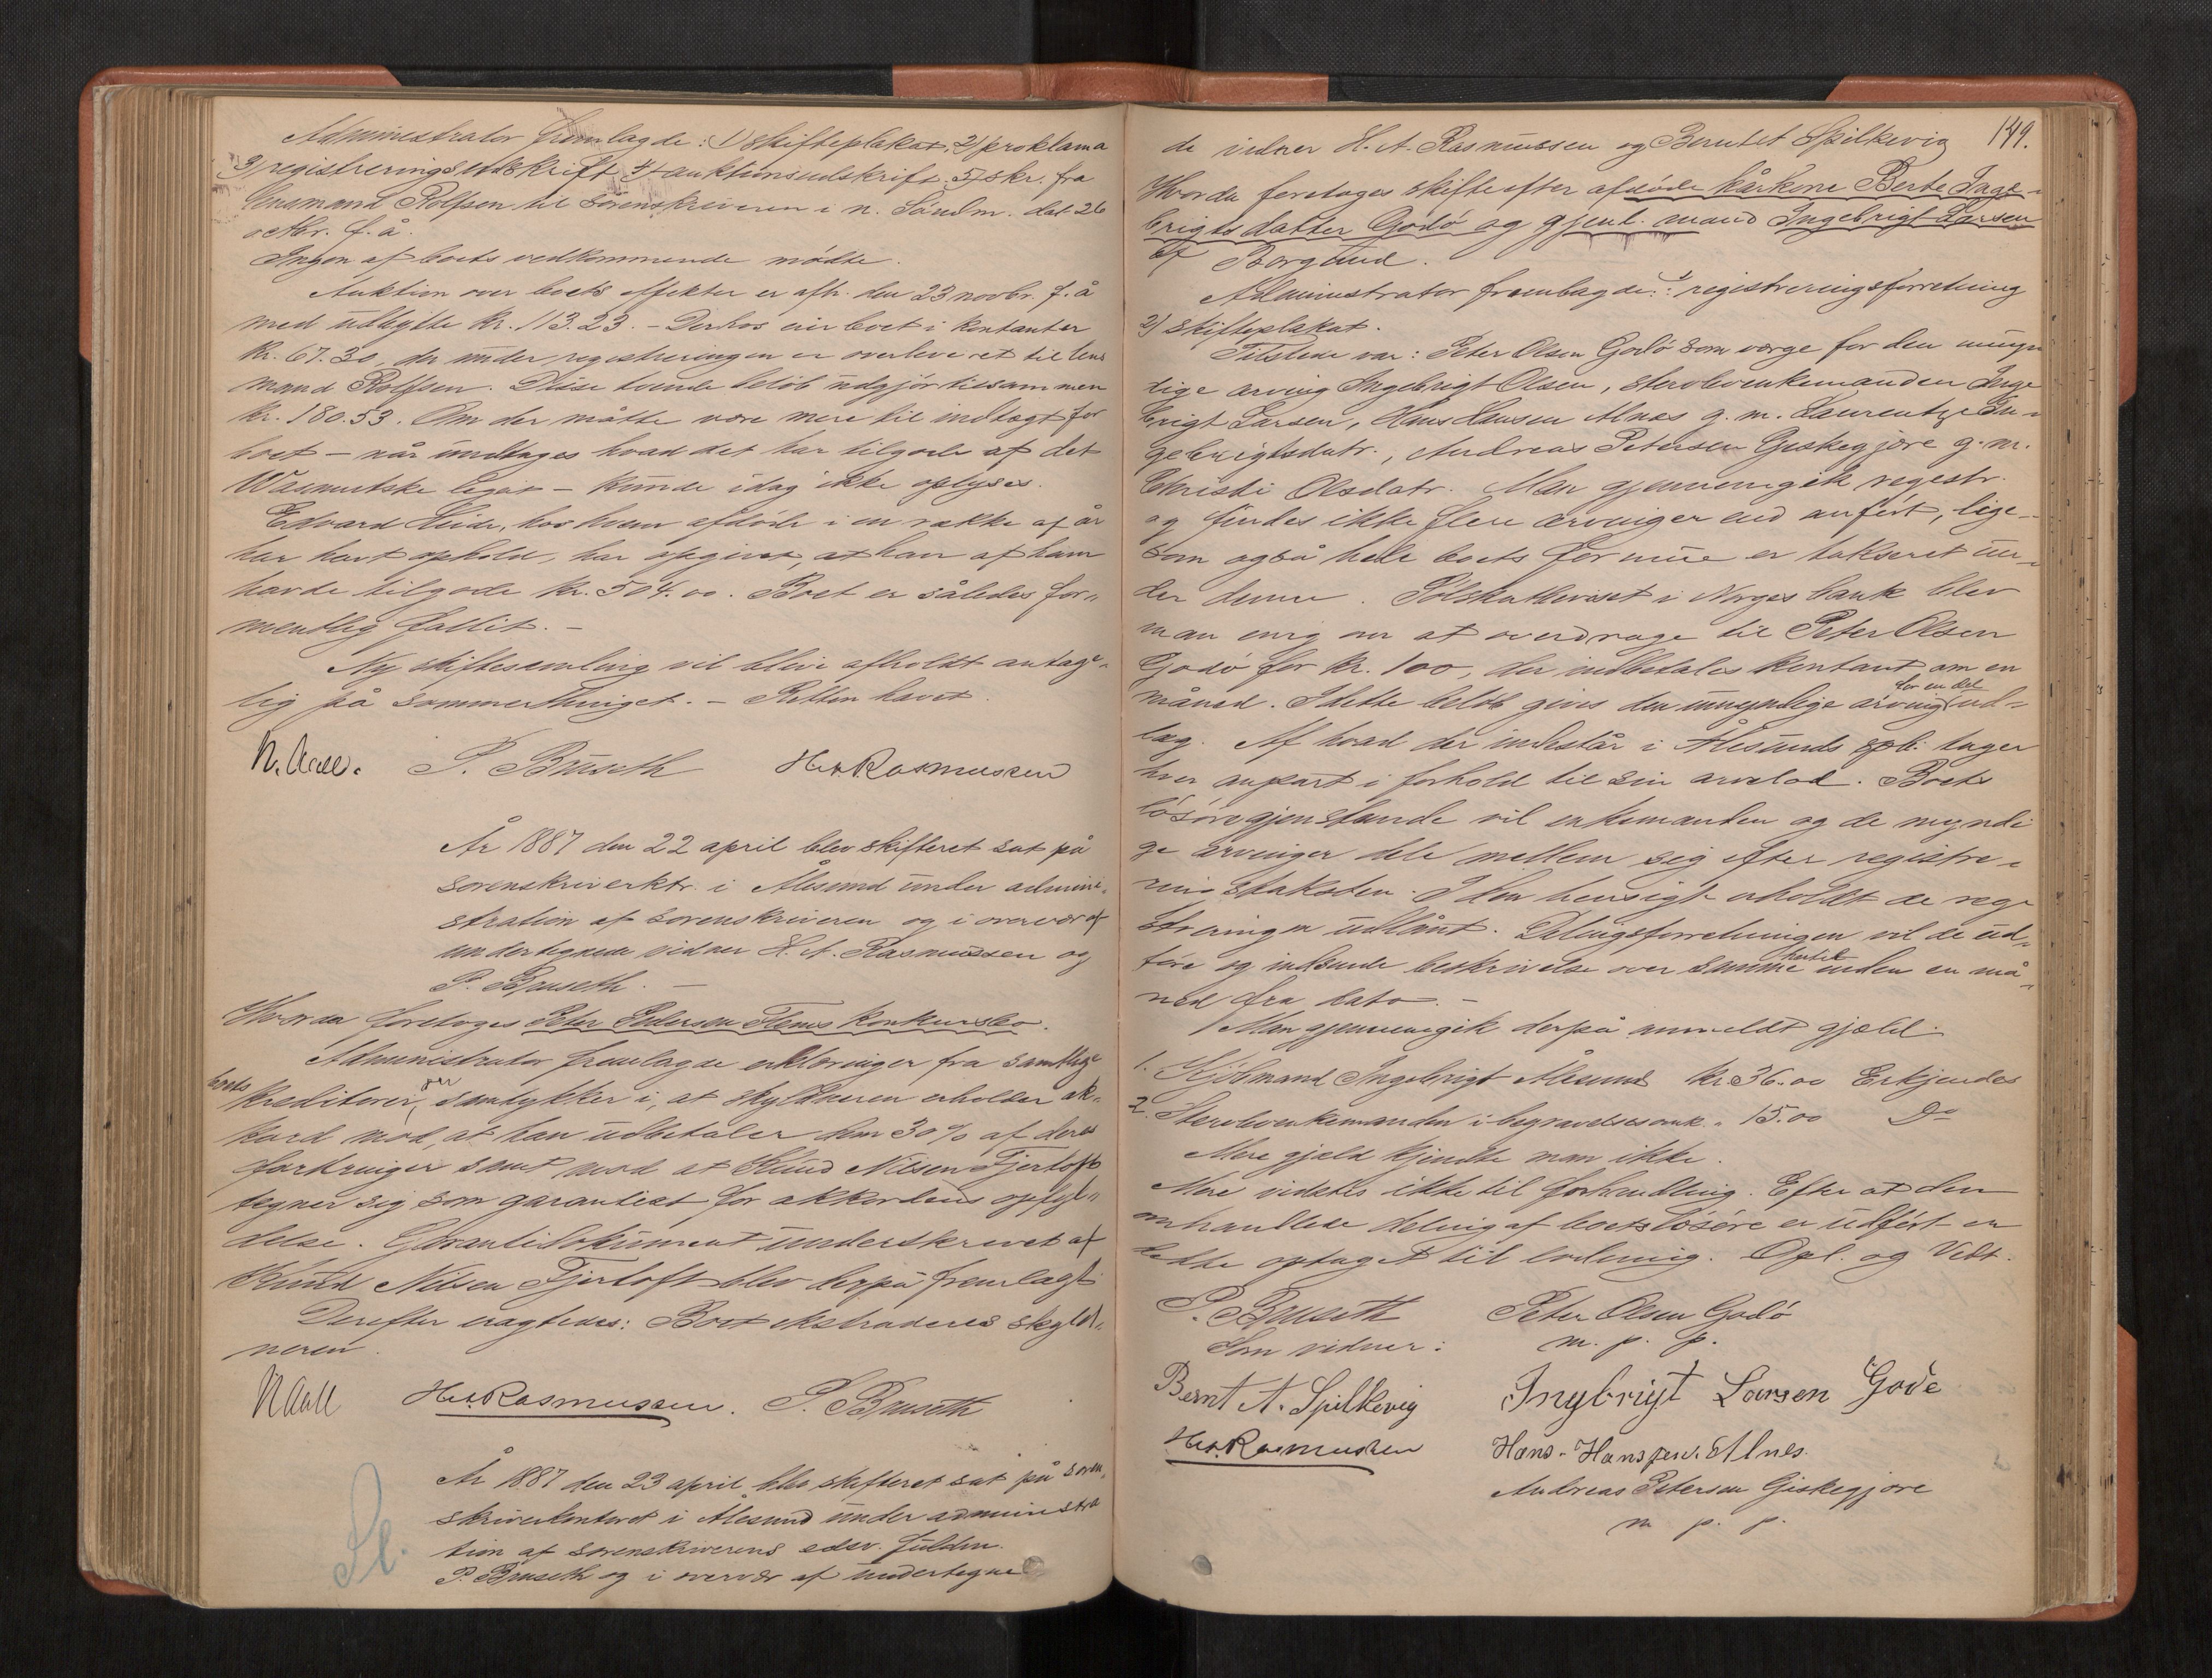 Administrator fremlagde: 1) skifteplakat, 2) proklama
3) registreringsudskrift 4) auktionsudskrift. 5) skr. fra
lensmand Rolfsen til sorenskriveren i n. Söndm. dat 26
octbr. f. å.
Ingen af boets vedkommende mödte.
Auktion over boets effekter er afh. den 23 novbr. f. å
med udbytte kr. 113.23. – Derhos eier boet i kontanter
kr. 67.30, der under registreringen er overleveret til lens
mand Rolfsen. Disse tvende belöb udgjör tilsammen
kr. 180.53. Om der måtte være mere til indtægt for
boet – når undtages hvad det har tilgode af det
legat – kunde idag ikke oplyses.
Edvard hos hvem afdöde i en række af år
har havt ophold, har opgivet, at han af ham
havde tilgode kr. 504.00. Boet er således for-
mentlig fallit. –
Ny skiftesamling vil blive afholdt antage-
lig på sommerthinget. – Retten hævet.
N. Aall. P. Bruseth H. A. Rasmussen
År 1887 den 22 april blev skifteret sat på
sorenskriverktr. i Ålesund under admini-
stration af sorenskriveren og i overvær af
undertegnede vidner H. A. Rasmussen og
P. Bruseth. –
Hvorda foretoges Peter Pedersen Flems konkursbo.
Administrator fremlagde erklæringer fra samtlige
boets kreditorer, der samtykker i, at skyldneren erholder ak-
kord mod, at han udbetaler dem 30% af deres
fordringer samt mod at Knud Nilsen Fjertoft
tegner sig som garantist for akkordens opfyl-
delse. Garantidokument underskrevet af
Knud Nilsen Fjertoft blev derpå fremlagt
Derefter eragtedes: Boet ekstraderes skyld-
neren.
N Aall H. A. Rasmussen. P. Bruseth
År 1887 den 23 april blev skifteret sat på soren-
skriverkontoret i Ålesund under administra
tion af sorenskriverens edsv. fuldm.
P. Bruseth og i overvær af undertegne
149.
de vidner H. A. Rasmussen og Berntet Spilkevig
Hvorda foretoges skifte efter afdöde kårkone Berte Inge-
brigtsdatter Godö og gjenl. mand Ingebrigt Larsen
af Borgund.
Administrator fremlagde: 1) registreringsforretning
2) skifteplakat.
Tilstede var: Peter Olsen Godö som værge for den umyn
dige arving Ingebrigt Olsen, stervboenkemanden Inge
brigt Larsen, Hans Hansen Alnes g. m. Laurentze In-
gebrigtsdatr., Andreas Petersen Giskegjöre g. m.
Christi Olsdatr. Man gjennemgik registr.
og findes ikke flere arvinger end anfört, lige-
som også hele boets formue er takseret un-
der denne. Sölvskatbeviset i Norges bank blev
man enig om at overdrage til Peter Olsen
Godö for kr. 100, der indbetales kontant om en
måned. I dette belöb gives den umyndige arving for en del ud-
læg. Af hvad der indestår i Ålesunds spb. tager
hver anpart i forhold til sin arvelod. Boets
lösöregjenstande vil enkemanden og de myndi
ge arvinger dele mellem sig efter registre-
ringstaksten. I den hensigt erholdt de regi
streringen udlånt. Delingsforretningen vil de ud-
före og indsende beskrivelse over samme hertil inden en må-
ned fra dato. –
Man gjennemgik derpå anmeldt gjæld.
1. Kjöbmand Ingebrigt Ålesund kr. 36.00 Erkjendes
2. Stervboenkemanden i begravelsesomk. " 15.00 Do
Mere gjæld kjendte man ikke.
Mere vidstes ikke til forhandling. Efter at den
omhandlede deling af boets lösöre er udfört er
dette optaget til lodning. Opl. og Vedt.
P. Bruseth Peter Olsen Godö
Som vidner: m. p. p.
Bernt A. Spilkevig Ingbrigt Larsen Gode
H. A. Rasmussen Hans Hansen Alnes.
Andreas Petersen Giskegjöre
m. p. p.